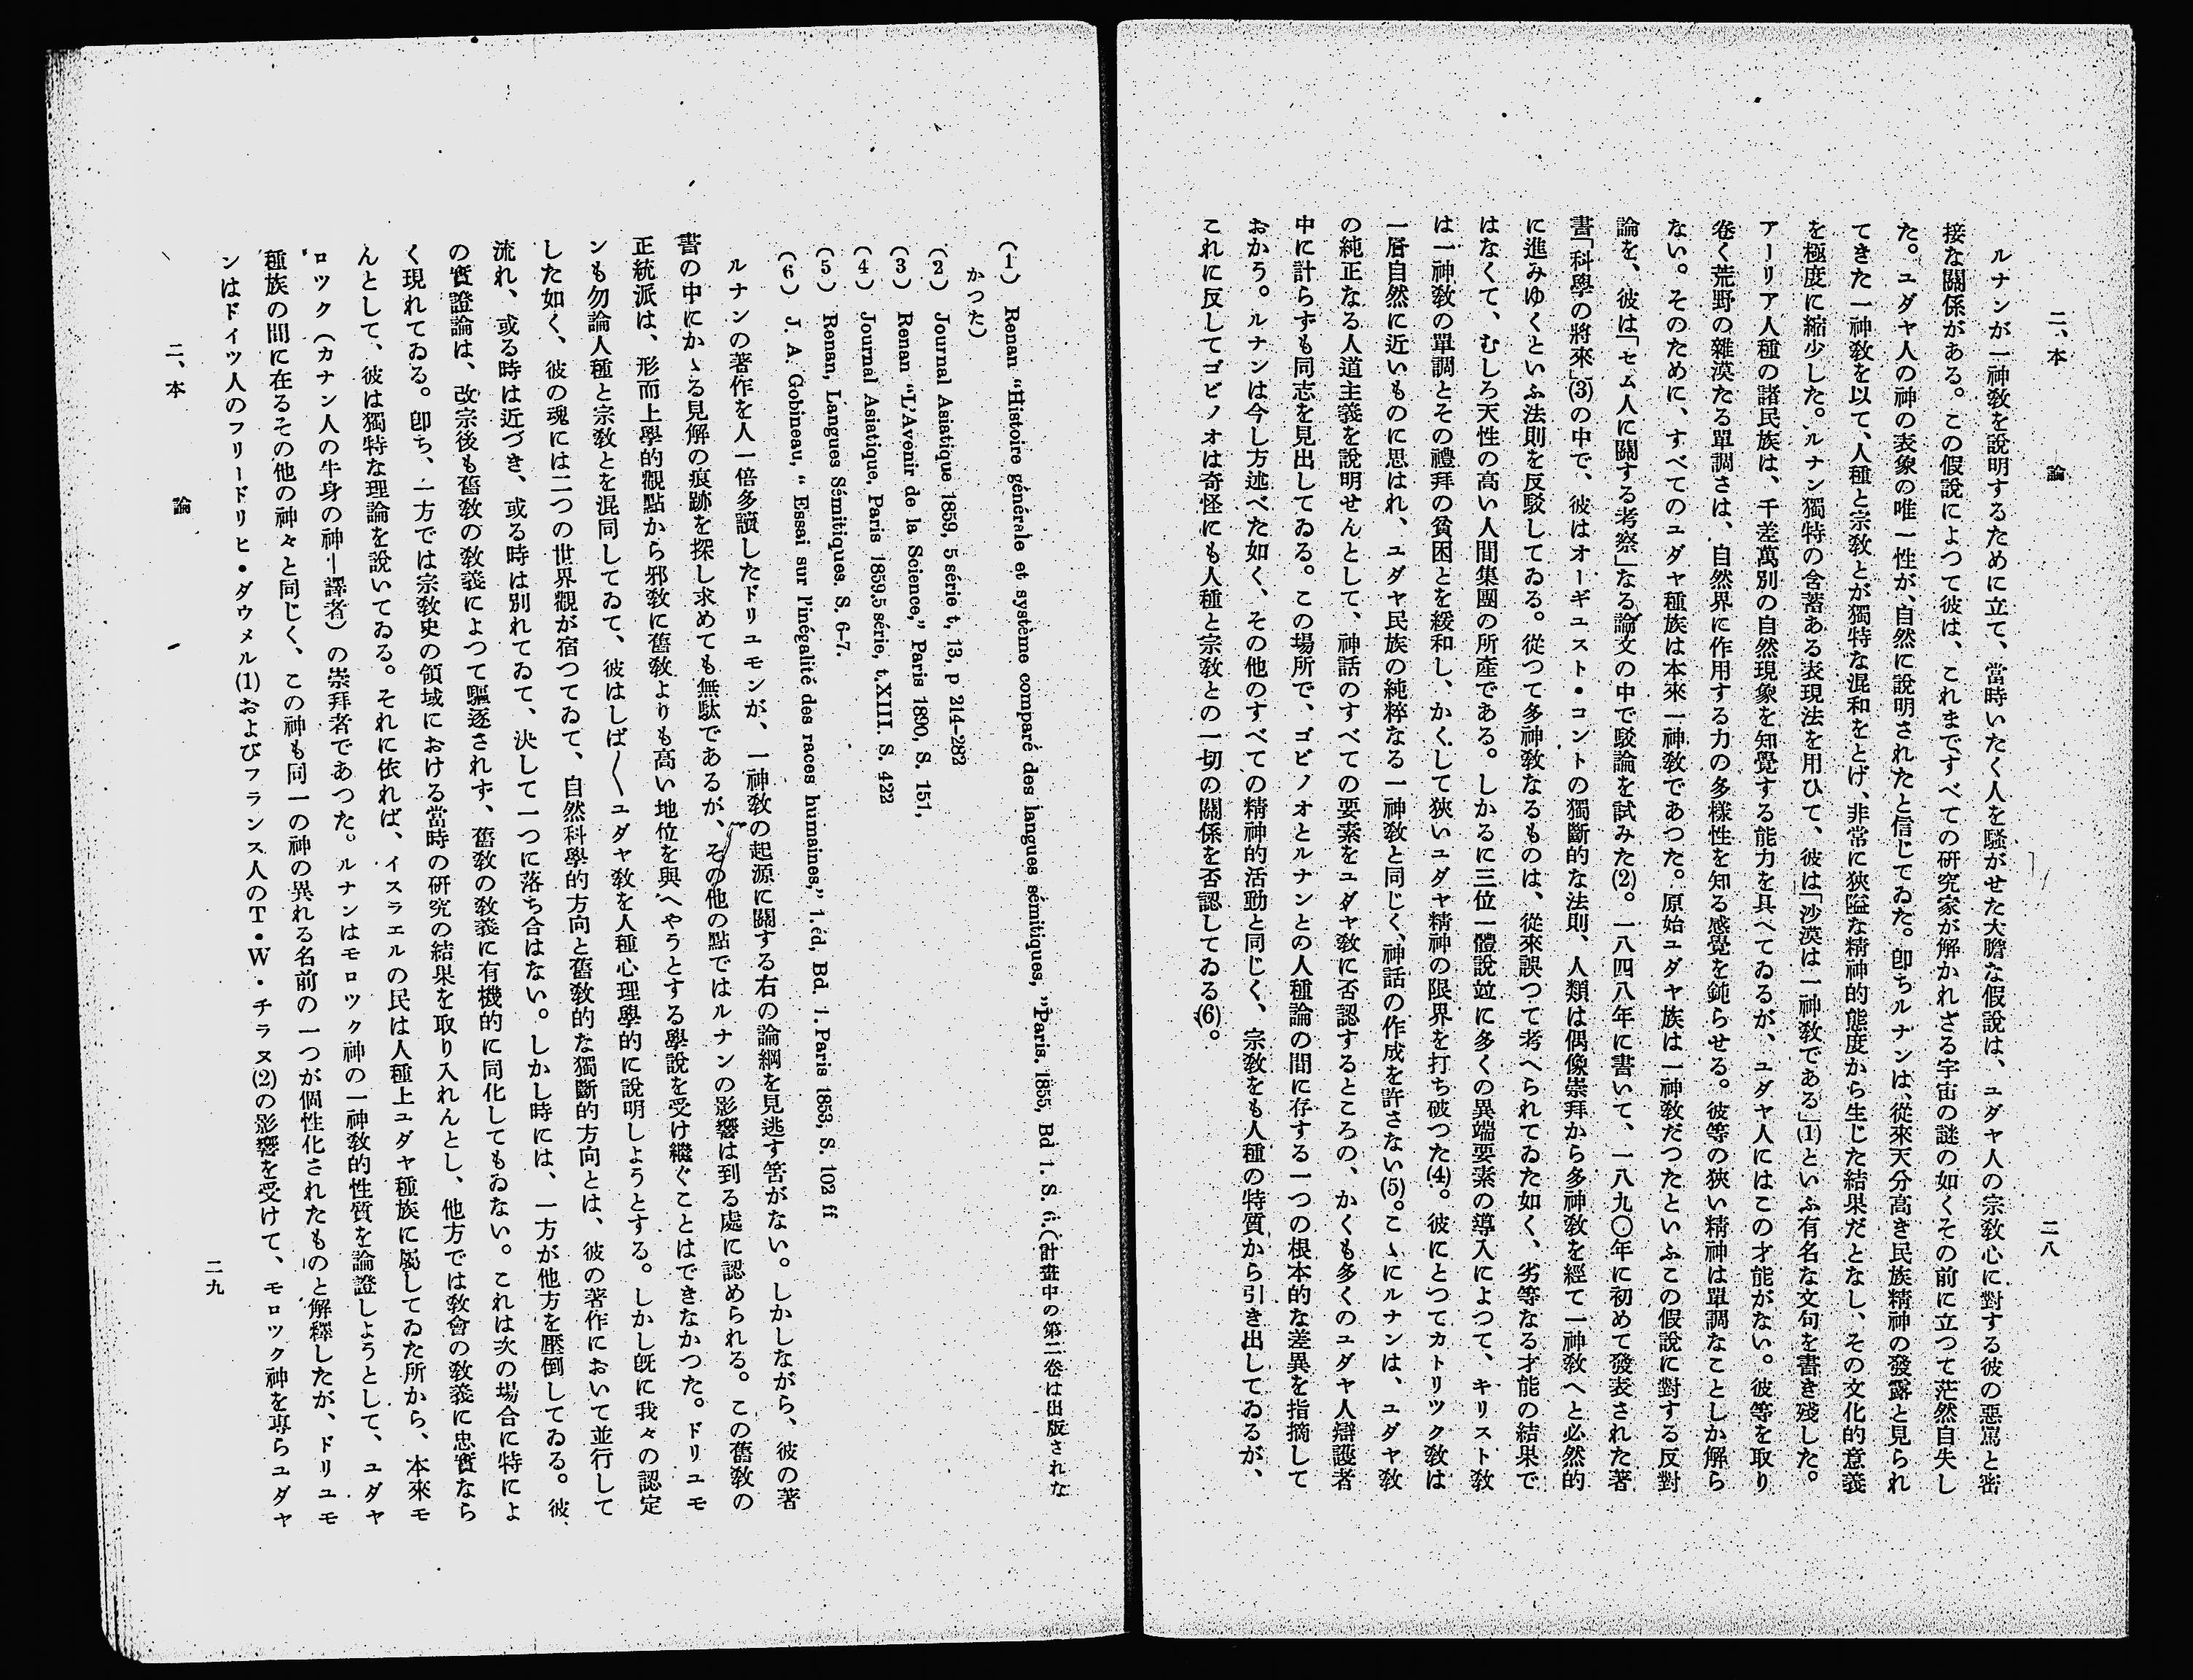 二、本 論
二八
ルナンが一神敎を說明するために立て、當時いたく人を騷がせた大膽な假說は、ユダヤ人の宗敎心に對する彼の惡罵と密
接な關係がある。この假說によつて彼は、これまですべての研究家が解かれざる宇宙の謎の如くその前に立つて茫然自失し
た。ユダヤ人の神の表象の唯一性が、自然に說明されたと信じてゐた。卽ちルナンは、從來天分高き民族精神の發露と見られ
てきた一神敎を以て、人種と宗敎とが獨特な混和をとげ、非常に狹隘な精神的態度から生じた結果だとなし、その文化的意義
を極度に縮少した。ルナン獨特の含蓄ある表現法を用ひて、彼は「沙漠は一神敎である」(1)といふ有名な文句を書き殘した。
アーリア人種の諸民族は、千差萬別の自然現象を知覺する能力を具へてゐるが、ユダヤ人にはこの才能がない。彼等を取り
卷く荒野の雜漠たる單調さは、自然界に作用する力の多樣性を知る感覺を鈍らせる。彼等の狹い精神は單調なことしか解ら
ない。そのために、すべてのユダヤ種族は本來一神敎であつた。原始ユダヤ族は一神敎だつたといふこの假說に對する反對
論を、彼は「セム人に關する考察」なる論文の中で駁論を試みた(2)。一八四八年に書いて、一八九〇年に初めて發表された著
書「科學の將來」(3)の中で、彼はオーギュスト・コントの獨斷的な法則、人類は偶像崇拜から多神敎を經て一神敎へと必然的
に進みゆくといふ法則を反駁してゐる。從つて多神敎なるものは、從來誤つて考へられてゐた如く、劣等なる才能の結果で
はなくて、むしろ天性の高い人間集團の所產である。しかるに三位一體說竝に多くの異端要素の導入によつて、キリスト敎
は一神敎の單調とその禮拜の貧困とを緩和し、かくして狹いユダヤ精神の限界を打ち破つた(4)。彼にとつてカトリツク敎は
一層自然に近いものに思はれ、ユダヤ民族の純粹なる一神敎と同じく、神話の作成を許さない(5)。こゝにルナンは、ユダヤ敎
の純正なる人道主義を說明せんとして、神話のすべての要素をユダヤ敎に否認するところの、かくも多くのユダヤ人辯護者
中に計らずも同志を見出してゐる。この場所で、ゴビノオとルナンとの人種論の間に存する一つの根本的な差異を指摘して
おかう。ルナンは今し方述べた如く、その他のすべての精神的活動と同じく、宗敎をも人種の特質から引き出してゐるが、
これに反してゴビノオは奇怪にも人種と宗敎との一切の關係を否認してゐる(6)。
(1) Renan “Histoire générale et système comparé des langues sémitiques, ”Paris. 1855, Bd 1. S. 6.(計畫中の第二卷は出版されな
かつた)
(2) Journal Asiatique 1859, 5 série t, 13, p 214-282
(3) Renan “L'Avenir de la Science,” Paris 1890, S. 151,
(4) Journal Asiatique, Paris 1859.5 série, t.XIII. S. 422
(5) Renan, Langues Sémitiques. S. 6-7.
(6) J. A. Gobineau, “ Essai sur l'inégalité des races humaines,” 1. éd, Bd. 1. Paris 1853, S. 102 ff
ルナンの著作を人一倍多讀したドリユモンが、一神敎の起源に關する右の論綱を見逃す筈がない。しかしながら、彼の著
書の中にかゝる見解の痕跡を探し求めても無駄であるが、その他の點ではルナンの影響は到る處に認められる。この舊敎の
正統派は、形而上學的觀點から邪敎に舊敎よりも高い地位を與へやうとする學說を受け繼ぐことはできなかつた。ドリユモ
ンも勿論人種と宗敎とを混同してゐて、彼はしば〱ユダヤ敎を人種心理學的に說明しようとする。しかし旣に我々の認定
した如く、彼の魂には二つの世界觀が宿つてゐて、自然科學的方向と舊敎的な獨斷的方向とは、彼の著作において並行して
流れ、或る時は近づき、或る時は別れてゐて、決して一つに落ち合はない。しかし時には、一方が他方を壓倒してゐる。彼
の實證論は、改宗後も舊敎の敎義によつて驅逐されず、舊敎の敎義に有機的に同化してもゐない。これは次の場合に特によ
く現れてゐる。卽ち、一方では宗敎史の領域における當時の研究の結果を取り入れんとし、他方では敎會の敎義に忠實なら
んとして、彼は獨特な理論を說いてゐる。それに依れば、イスラエルの民は人種上ユダヤ種族に屬してゐた所から、本來モ
ロツク(カナン人の牛身の神―譯者)の崇拜者であつた。ルナンはモロツク神の一神敎的性質を論證しようとして、ユダヤ
種族の間に在るその他の神々と同じく、この神も同一の神の異れる名前の一つが個性化されたものと解釋したが、ドリユモ
ンはドイツ人のフリードリヒ・ダウメル(1)およびフランス人のT・W・チラヌ(2)の影響を受けて、モロツク神を專らユダヤ
二、本 論
二九